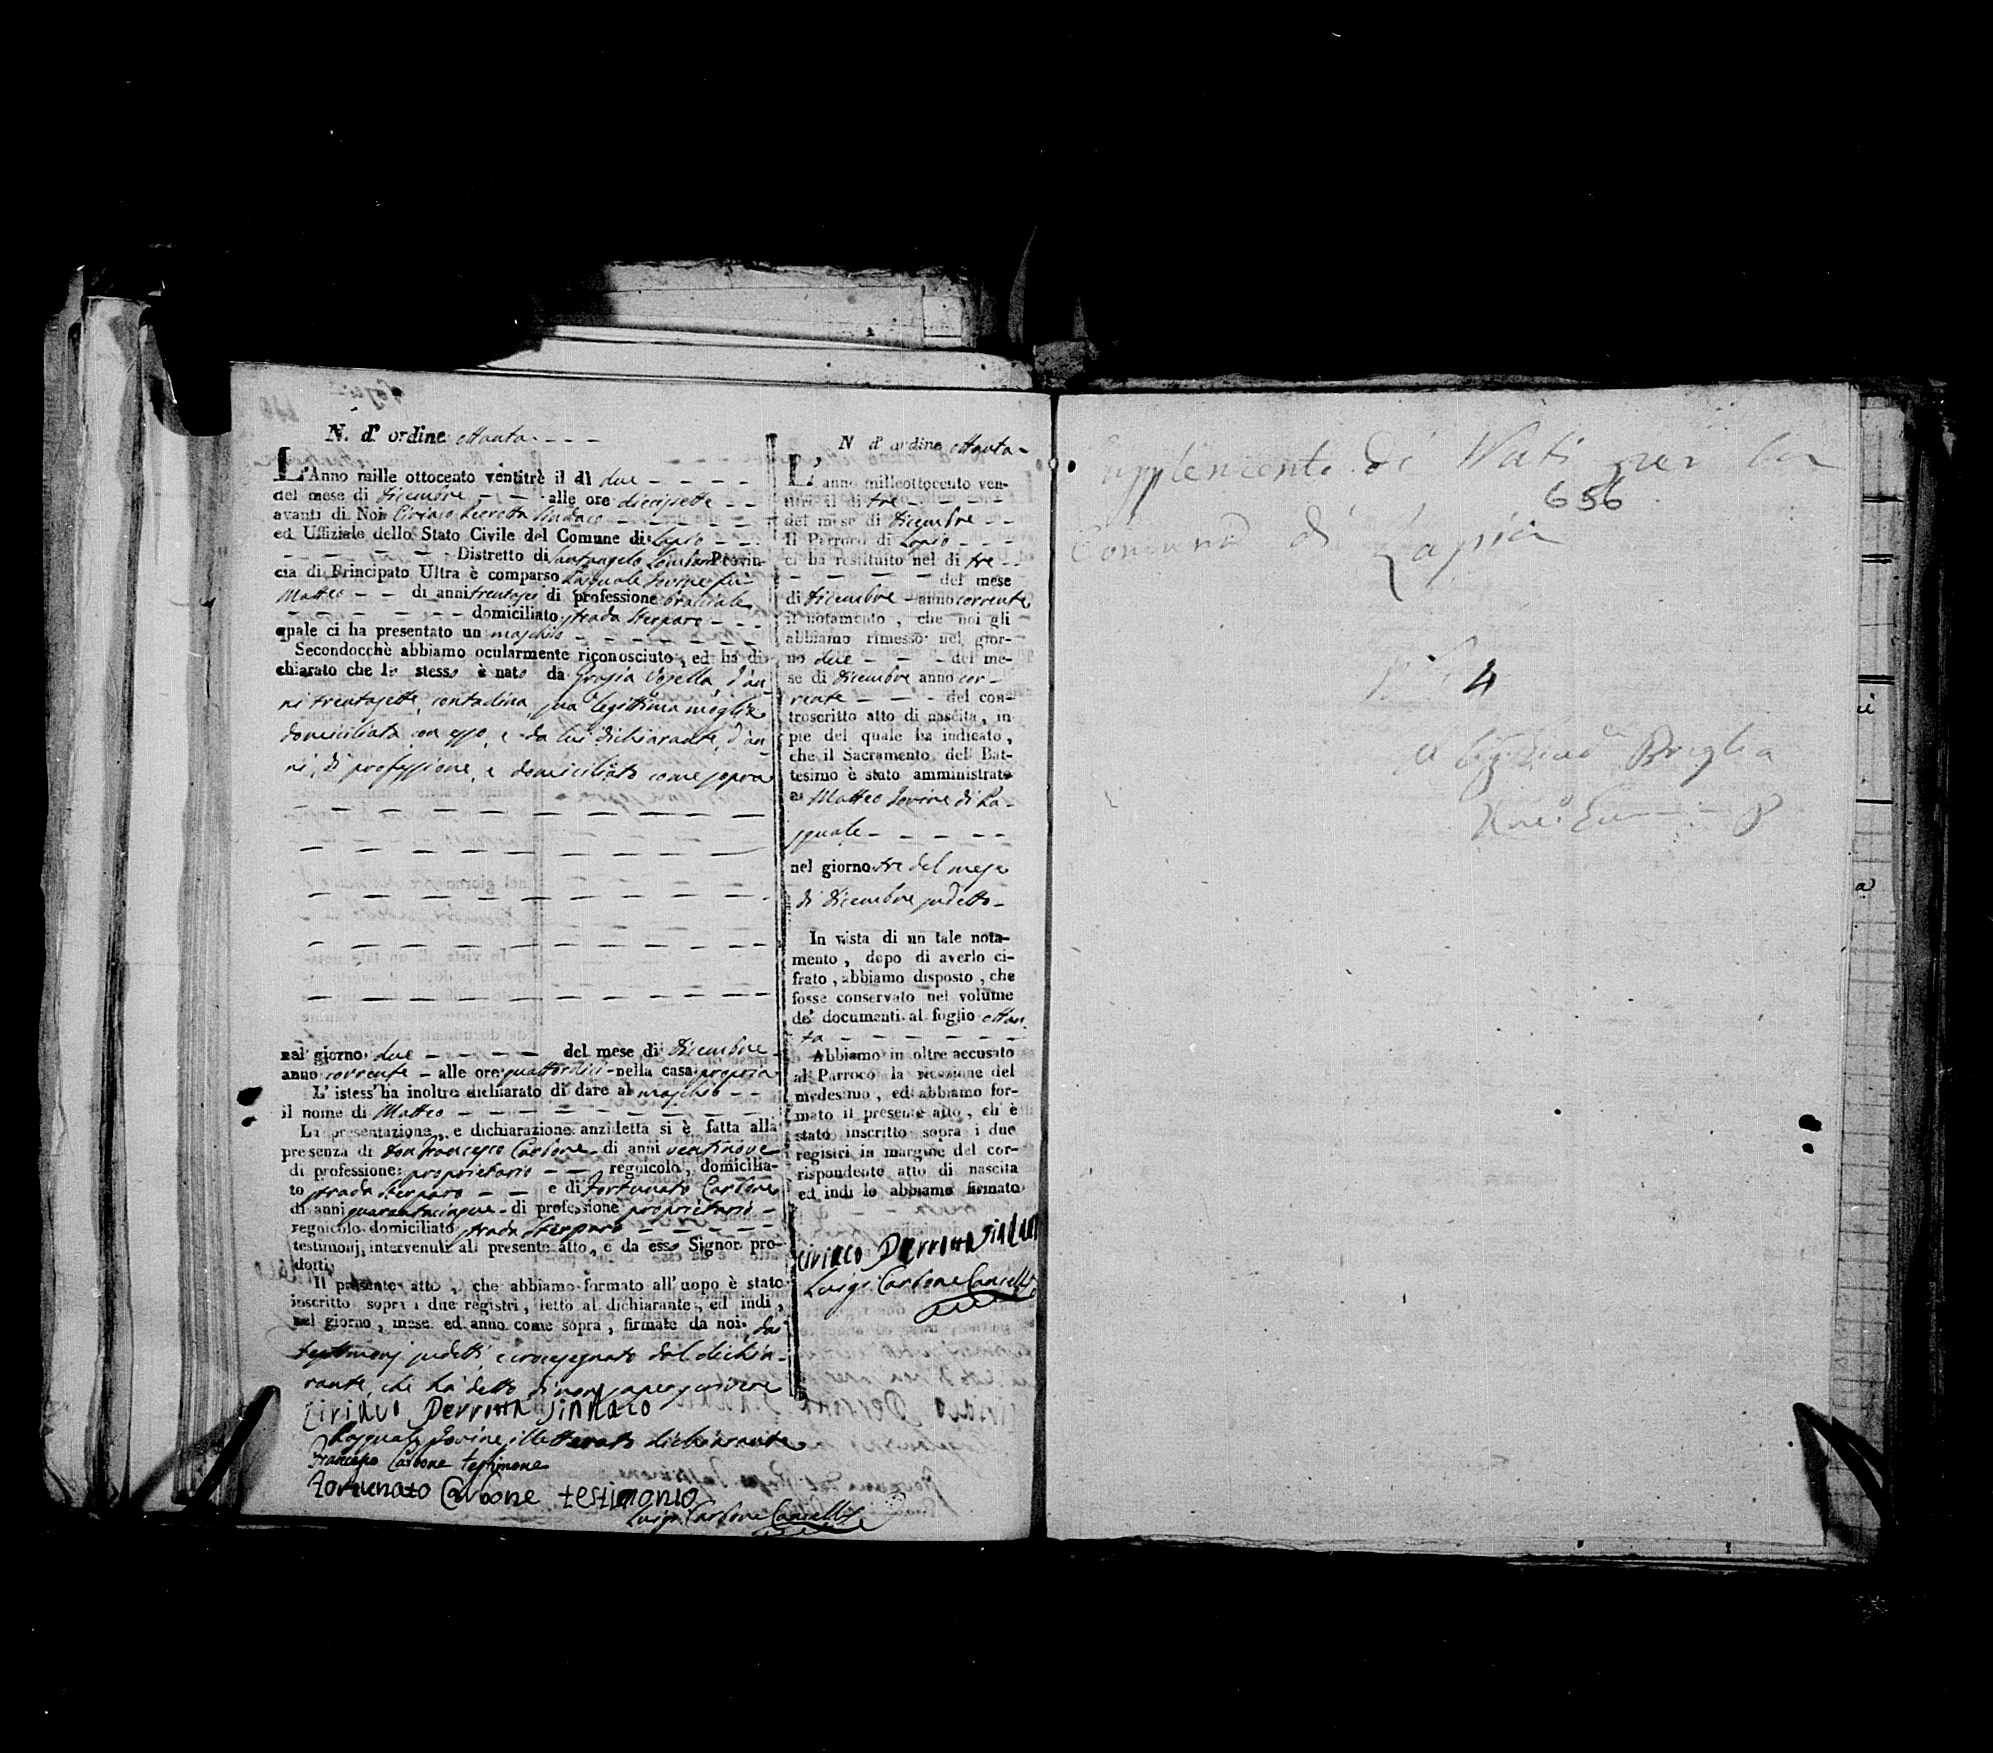 N. d' ordine ottanta
L'Anno mille ottocento ventitrè il dì due
del mese di Dicembre alle ore diecisette
avanti di Noi Ciriaco Perrotta Sindaco
ed Uffiziale dello Stato Civile del Comune di Lapio
Distretto di Santangelo Lombardi Provin-
cia di Principato Ultra è comparso Pasquale Iovine fu
Matteo di anni trentasei di professione bracciale
domiciliato strada Sterparo
quale ci ha presentato un maschio
Secondocchè abbiamo ocularmente riconosciuto, ed ha di-
chiarato che lo stesso è nato da Grazia Vosella, d'an-
ni trentasette, contadina, sua legittima moglie
domiciliata con esso, e da lui dichiarante, d'an-
ni, di professione, e domiciliato come sopra
nel giorno due del mese di Dicembre
anno corrente alle ore quattordici nella casa propria
L' istess' ha inoltre dichiarato di dare al maschio
il nome di Matteo
La presentazione, e dichiarazione anzidetta si è fatta alla
presenza di Don Francesco Carbone di anni ventinove
di professione proprietario regnicolo, domicilia-
to strada Sterparo e di Fortunato Carbone
di anni quarantacinque di professione proprietario
regnicolo domiciliato strada Sterparo
testimonj intervenuti all presente atto, e da esso Signor pro-
dotti
Il presente atto, che abbiamo formato all' uopo è stato
inscritto sopra i due registri, letto al dichiarante, ed indi,
nel giorno, mese ed anno come sopra, firmate da noi, dai
testimonj sudetti, e crocesegnato dal dichia-
rante, che ha detto di non saper scrivere
Ciriaco Perrotta Sindaco
Pasquale Iovine illetterato dichiarante
Francesco Carbone testimone
Fortunato Carbone testimonio
Luigi Carbone Cancell.
N d' ordine ottanta
L' anno milleottocento ven-
titrè il dì tre
del mese di Dicembre
Il Parroco di Lapio
ci ha restituito nel dì tre
del mese
di Dicembre anno corrente
il notamento, che noi gli
abbiamo rimesso nel gior-
no due del me-
se di Dicembre anno cor-
rente del con-
troscritto atto di nascita, in
piè del quale ha indicato,
che il Sacramento del Bat-
tesimo è stato amministrato
a Matteo Iovine di Pa-
squale
nel giorno tre del mese
di Dicembre sudetto
In vista di un tale nota-
mento, dopo di averlo ci-
frato, abbiamo disposto, che
fosse conservato nel volume
de' documenti al foglio ottan-
ta
Abbiamo in oltre accusato
al Parroco la ricezione del
medesimo, ed abbiamo for-
mato il presente atto, ch' è
stato inscritto sopra i due
registri in margine del cor-
rispondente atto di nascita
ed indi lo abbiamo firmato
Ciriaco Perrotta Sindaco
Luigi Carbone Cancell.
Supplemento di Nati per la
656
Comune di Lapia
4
Briglia